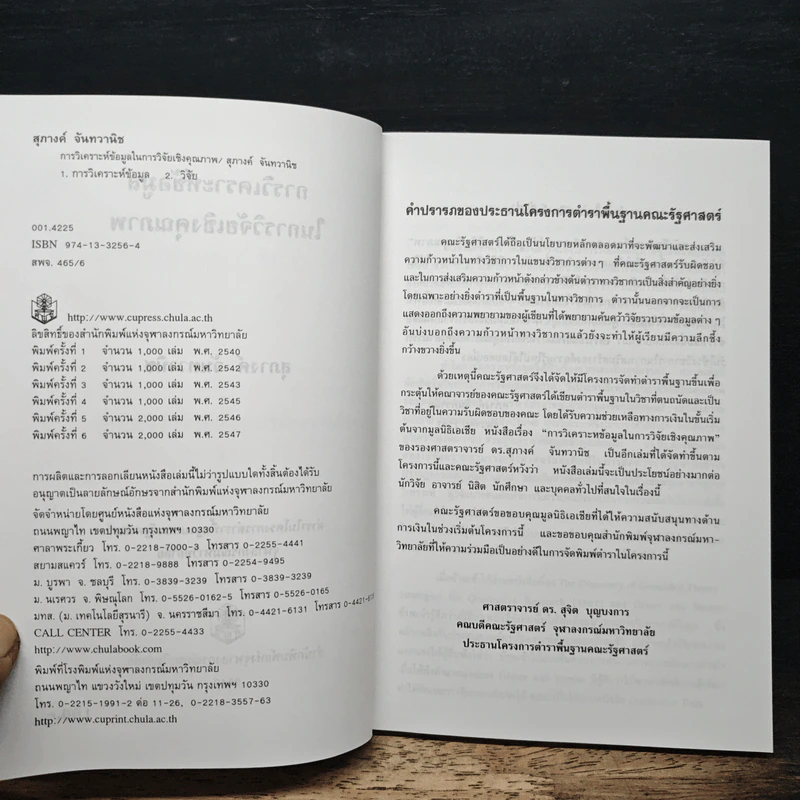 สุภางค์ จันทวานิช
การวิเคราะห์ข้อมูลในการวิจัยเชิงคุณภาพ/ สุภางค์ จันทวานิช
1. การวิเคราะห์ข้อมูล 2. วิจัย
001.4225
ISBN 974-13-3256-4
สพจ. 465/6
http://www.cupress.chula.ac.th
ลิขสิทธิ์ของสำนักพิมพ์แห่งจุฬาลงกรณ์มหาวิทยาลัย
พิมพ์ครั้งที่ 1 จำนวน 1,000 เล่ม พ.ศ. 2540
พิมพ์ครั้งที่ 2 จำนวน 1,000 เล่ม พ.ศ. 2542
พิมพ์ครั้งที่ 3 จำนวน 1,000 เล่ม พ.ศ. 2543
พิมพ์ครั้งที่ 4 จำนวน 1,000 เล่ม พ.ศ. 2545
พิมพ์ครั้งที่ 5 จำนวน 2,000 เล่ม พ.ศ. 2546
พิมพ์ครั้งที่ 6 จำนวน 2,000 เล่ม พ.ศ. 2547
การผลิตและการลอกเลียนหนังสือเล่มนี้ไม่ว่ารูปแบบใดทั้งสิ้นต้องได้รับ
อนุญาตเป็นลายลักษณ์อักษรจากสำนักพิมพ์แห่งจุฬาลงกรณ์มหาวิทยาลัย
จัดจำหน่ายโดยศูนย์หนังสือแห่งจุฬาลงกรณ์มหาวิทยาลัย
ถนนพญาไท เขตปทุมวัน กรุงเทพฯ 10330
ศาลาพระเกี้ยว โทร. 0-2218-7000-3 โทรสาร 0-2255-4441
สยามสแควร์ โทร. 0-2218-9888 โทรสาร 0-2254-9495
ม. บูรพา จ. ชลบุรี โทร. 0-3839-3239 โทรสาร 0-3839-3239
ม. นเรศวร จ. พิษณุโลก โทร. 0-5526-0162-5 โทรสาร 0-5526-0165
มทส. (ม. เทคโนโลยีสุรนารี) จ. นครราชสีมา โทร. 0-4421-6131 โทรสาร
CALL CENTER โทร. 0-2255-4433
http://www.chulabook.com
พิมพ์ที่โรงพิมพ์แห่งจุฬาลงกรณ์มหาวิทยาลัย
ถนนพญาไท แขวงวังใหม่ เขตปทุมวัน กรุงเทพฯ 10330
โทร. 0-2215-1991-2 ต่อ 11-26, 0-2218-3557-63
http://www.cuprint.chula.ac.th
คำปรารภของประธานโครงการตำราพื้นฐานคณะรัฐศาสตร์
คณะรัฐศาสตร์ได้ถือเป็นนโยบายหลักตลอดมาที่จะพัฒนาและส่งเสริม
ความก้าวหน้าในทางวิชาการในแขนงวิชาการต่างๆ ที่คณะรัฐศาสตร์รับผิดชอบ
และในการส่งเสริมความก้าวหน้าดังกล่าวข้างต้นตำราทางวิชาการเป็นสิ่งสำคัญอย่างยิ่ง
โดยเฉพาะอย่างยิ่งตำราที่เป็นพื้นฐานในทางวิชาการ ตำรานั้นนอกจากจะเป็นการ
แสดงออกถึงความพยายามของผู้เขียนที่ได้พยายามค้นคว้าวิจัยรวบรวมข้อมูลต่าง ๆ
อันบ่งบอกถึงความก้าวหน้าทางวิชาการแล้วยังจะทำให้ผู้เรียนมีความลึกซึ้ง
กว้างขวางยิ่งขึ้น
ด้วยเหตุนี้คณะรัฐศาสตร์จึงได้จัดให้มีโครงการจัดทำตำราพื้นฐานขึ้นเพื่อ
กระตุ้นให้คณาจารย์ของคณะรัฐศาสตร์ได้เขียนตำราพื้นฐานในวิชาที่ตนถนัดและเป็น
วิชาที่อยู่ในความรับผิดชอบของคณะ โดยได้รับความช่วยเหลือทางการเงินในขั้นเริ่ม
ต้นจากมูลนิธิเอเชีย หนังสือเรื่อง “การวิเคราะห์ข้อมูลในการวิจัยเชิงคุณภาพ”
ของรองศาสตราจารย์ ดร.สุภางค์ จันทวานิช เป็นอีกเล่มที่ได้จัดทำขึ้นตาม
โครงการนี้และคณะรัฐศาสตร์หวังว่า หนังสือเล่มนี้จะเป็นประโยชน์อย่างมากต่อ
นักวิจัย อาจารย์ นิสิต นักศึกษา และบุคคลทั่วไปที่สนใจในเรื่องนี้
คณะรัฐศาสตร์ขอขอบคุณมูลนิธิเอเชียที่ได้ให้ความสนับสนุนทางด้าน
การเงินในช่วงเริ่มต้นโครงการนี้ และขอขอบคุณสำนักพิมพ์จุฬาลงกรณ์มหา-
วิทยาลัยที่ให้ความร่วมมือเป็นอย่างดีในการจัดพิมพ์ตำราในโครงการนี้
ศาสตราจารย์ ดร. สุจิต บุญบงการ
คณบดีคณะรัฐศาสตร์ จุฬาลงกรณ์มหาวิทยาลัย
ประธานโครงการตำราพื้นฐานคณะรัฐศาสตร์